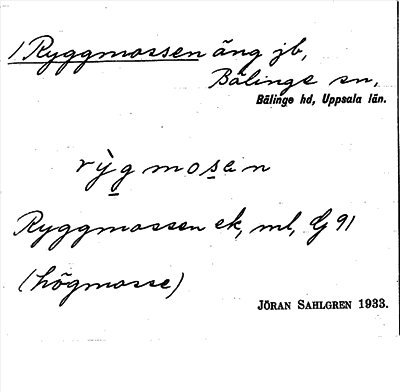 1 Ryggmossen äng jb,
Bälinge sn,
Bälinge hd, Uppsala län.
rỳgmosen
Ryggmossen ek, ml, G 91
(högmosse)
JÖRAN SAHLGREN 1933.